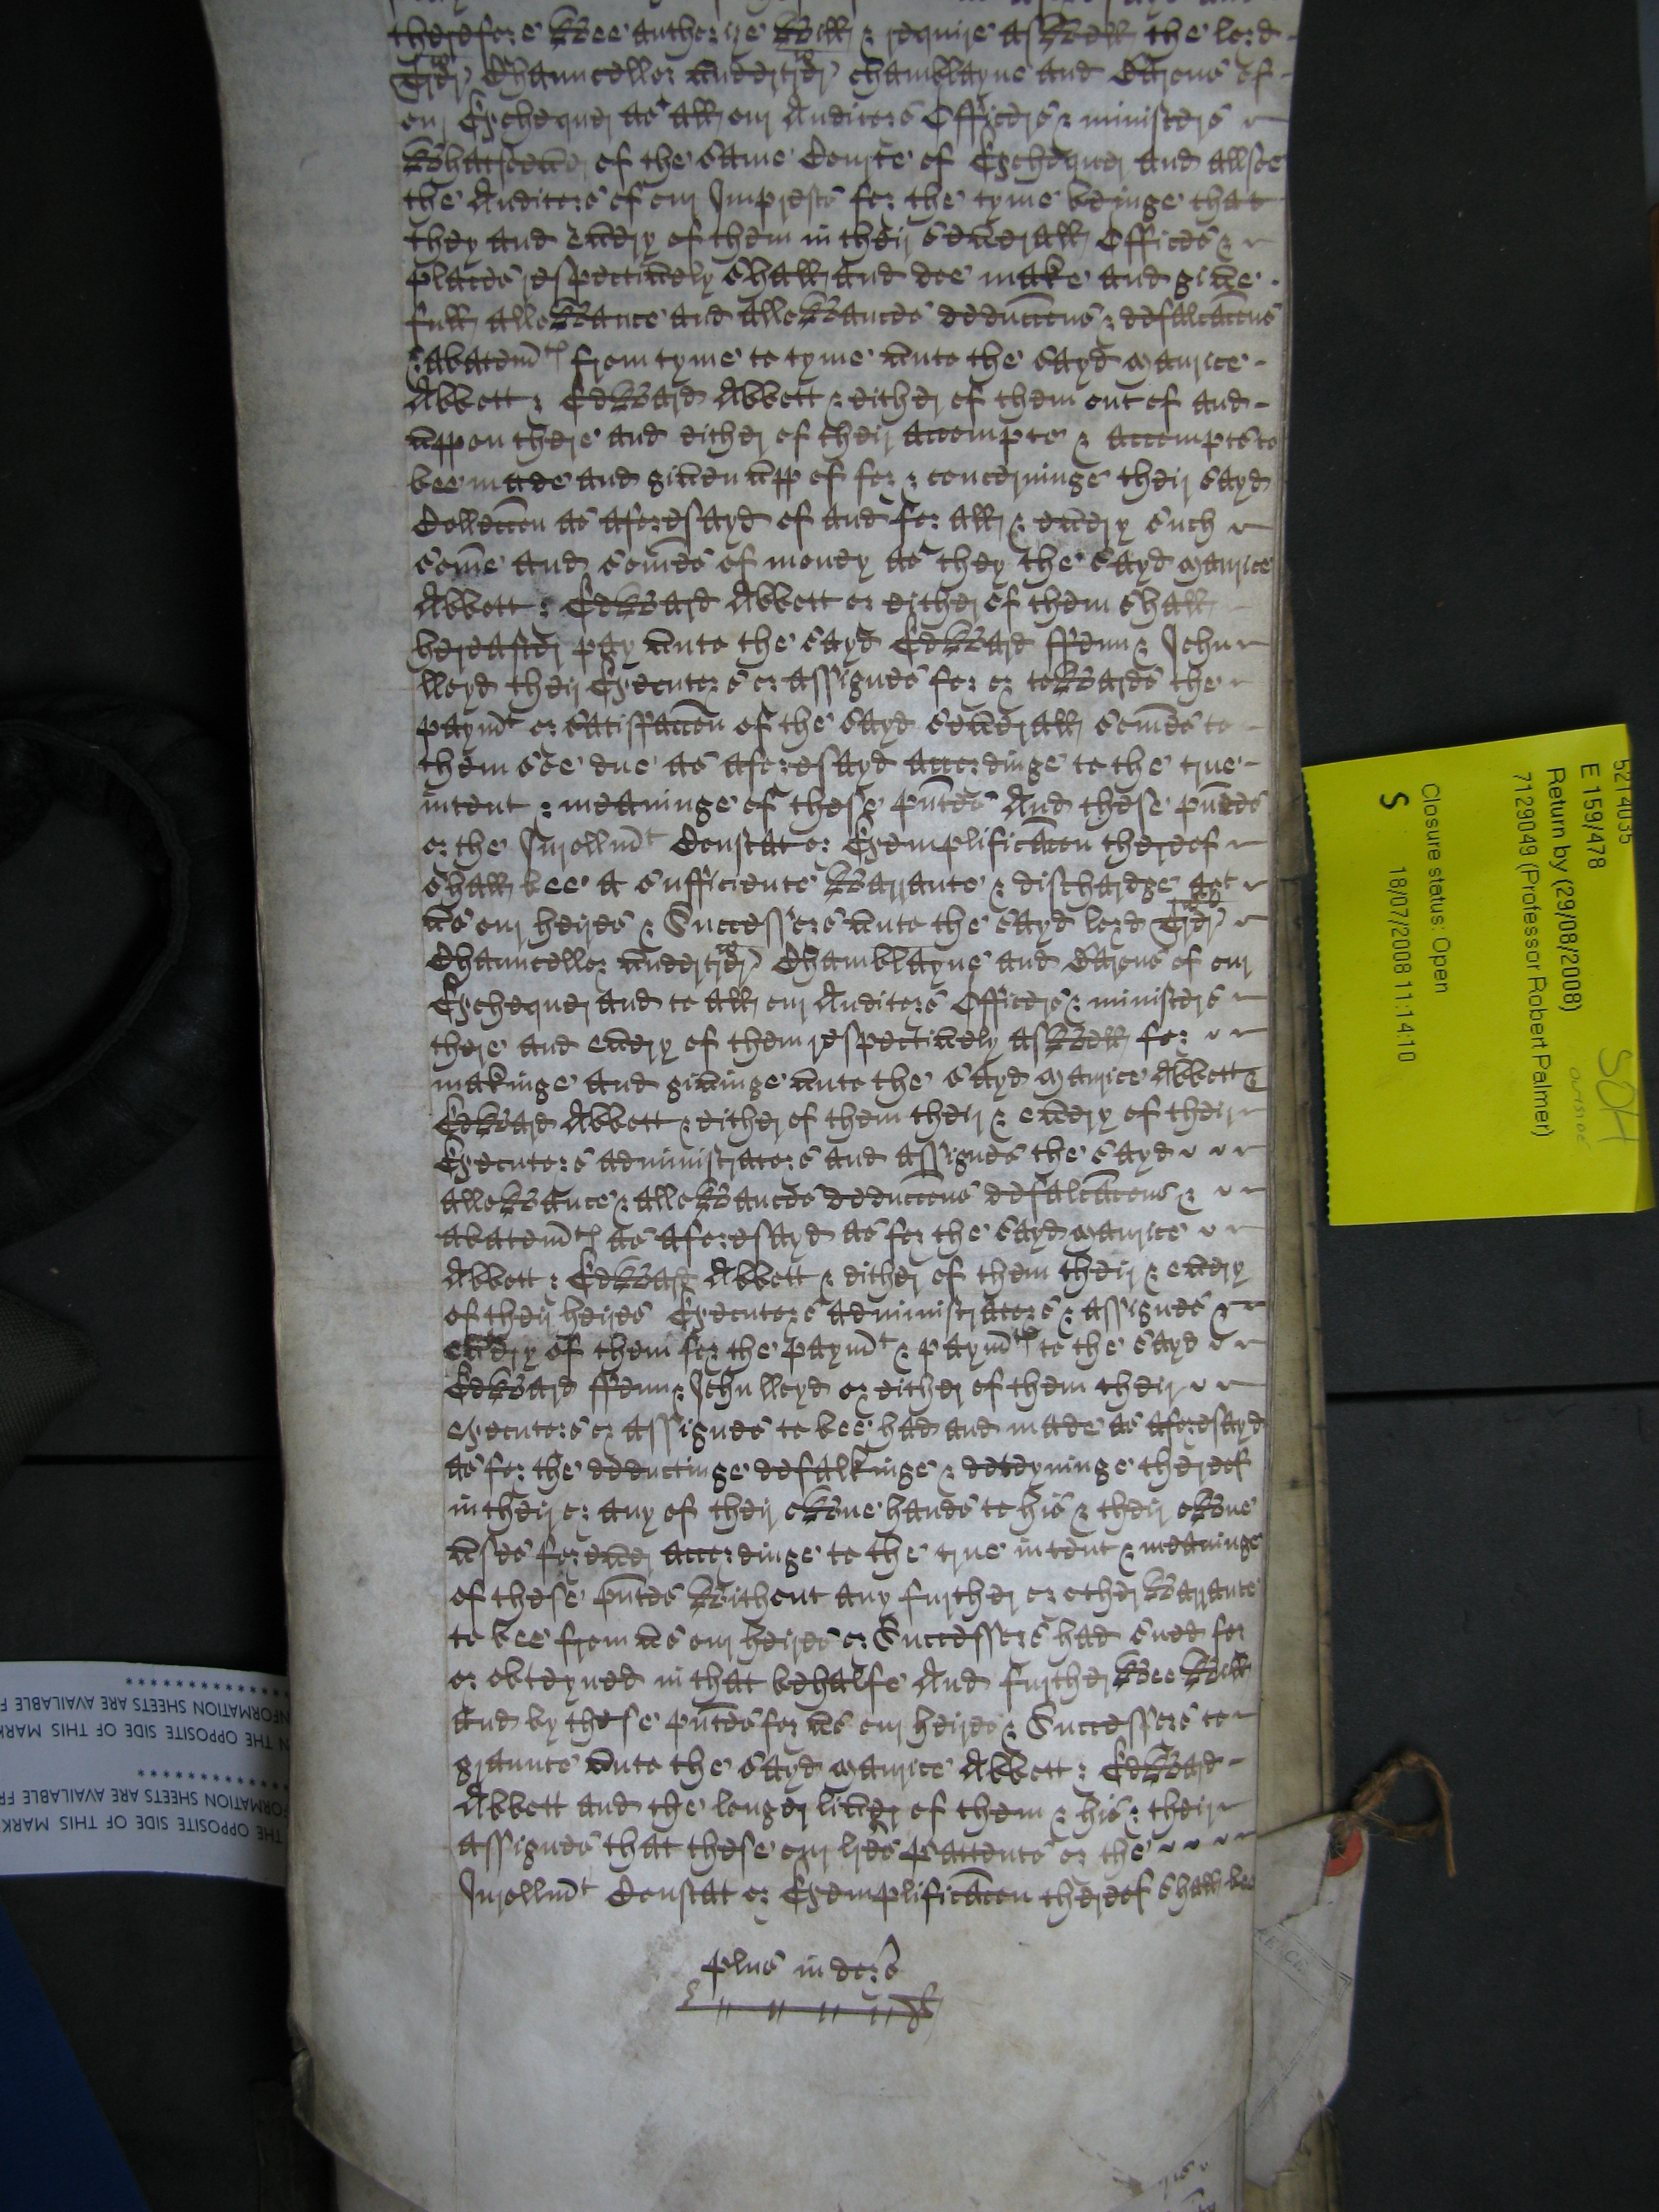 therefore Wee authorize Will & require aswell the lord
Trer Chauncellor underTrer Chamblayne and Barons of
our Exchequer as all our Auditors Officers & ministers
whatsoever of the same Courte of Exchequer and allsoe
the Auditors of our Imprests for the tyme beinge that
they and every of them in their severall Offices &
places respectively shall and doe make and give
full allowance and allowances deduccons & defalcacons
& abatemts from tyme to tyme unto the sayd Maurice
Abbott & Edward Abbott & either of them out of and
uppon there and either of their accompte & accompts to
bee made and given upp of for & concerninge their sayd
Colleccon as aforesayd of and for all & every such
some and somes of money as they the sayd Maurice
Abbott & Edward Abbott or either of them shall
hereafter pay unto the sayd Edward ffenn & John
lloyd their Executors or assignes for or towards the
paymt or satisfaccon of the sayd severall somes to
them soe due as aforesayd accordinge to the true
intent & meaninge of these pntes And these pntes
or the Inrollmt Constat or Exemplificacon thereof
shall bee a sufficiente warrante & discharge agt
us our heires & Successors unto the sayd lord Trer
Chauncellor underTrer Chamblayne and Barons of our
Exchequer and to all our Auditors Officers & ministers
there and every of them respectively aswell for
makinge and givinge unto the sayd Maurice Abbott &
Edward Abbott & either of them their & every of their
Executors administrators and assignes the sayd
allowance & allowances deduccons defalcacons &
abatemts as aforesayd as for the sayd Maurice
Abbott & Edward Abbott & either of them their & every
of their heires Executors administrators & assignes &
every of them for the paymt & paymts to the sayd
Edward ffenn & John lloyd or either of them their
executors or assignes to bee had and made as aforesayd
as for the deductinge defalkinge & deteyninge thereof
in their or any of their owne hands to his & their owne
uses for ever accordinge to the true intent & meaninge
of these pntes without any further or other warrante
to bee from us our heires or Successors had sued for
or obteyned in that behalfe And further Wee Will
And by these pntes for us our heires & Successors to
graunte unto the sayd Maurice Abbott & Edward
Abbott and the longer liver of them & his & their
assignes that these our lres Pattents or the
Inrollmt Constat or Exemplificacon thereof shall bee
plus in dors
5214035
E 159/478
Return by (29/08/2008)
7129049 (Professor Robert Palmer)
Closure status: Open
S 18/07/2008 11:14:10
THE OPPOSITE SIDE OF THIS MARK
FORMATION SHEETS ARE AVAILABLE FR
************
N THE OPPOSITE SIDE OF THIS MARK
NFORMATION SHEETS ARE AVAILABLE F
************